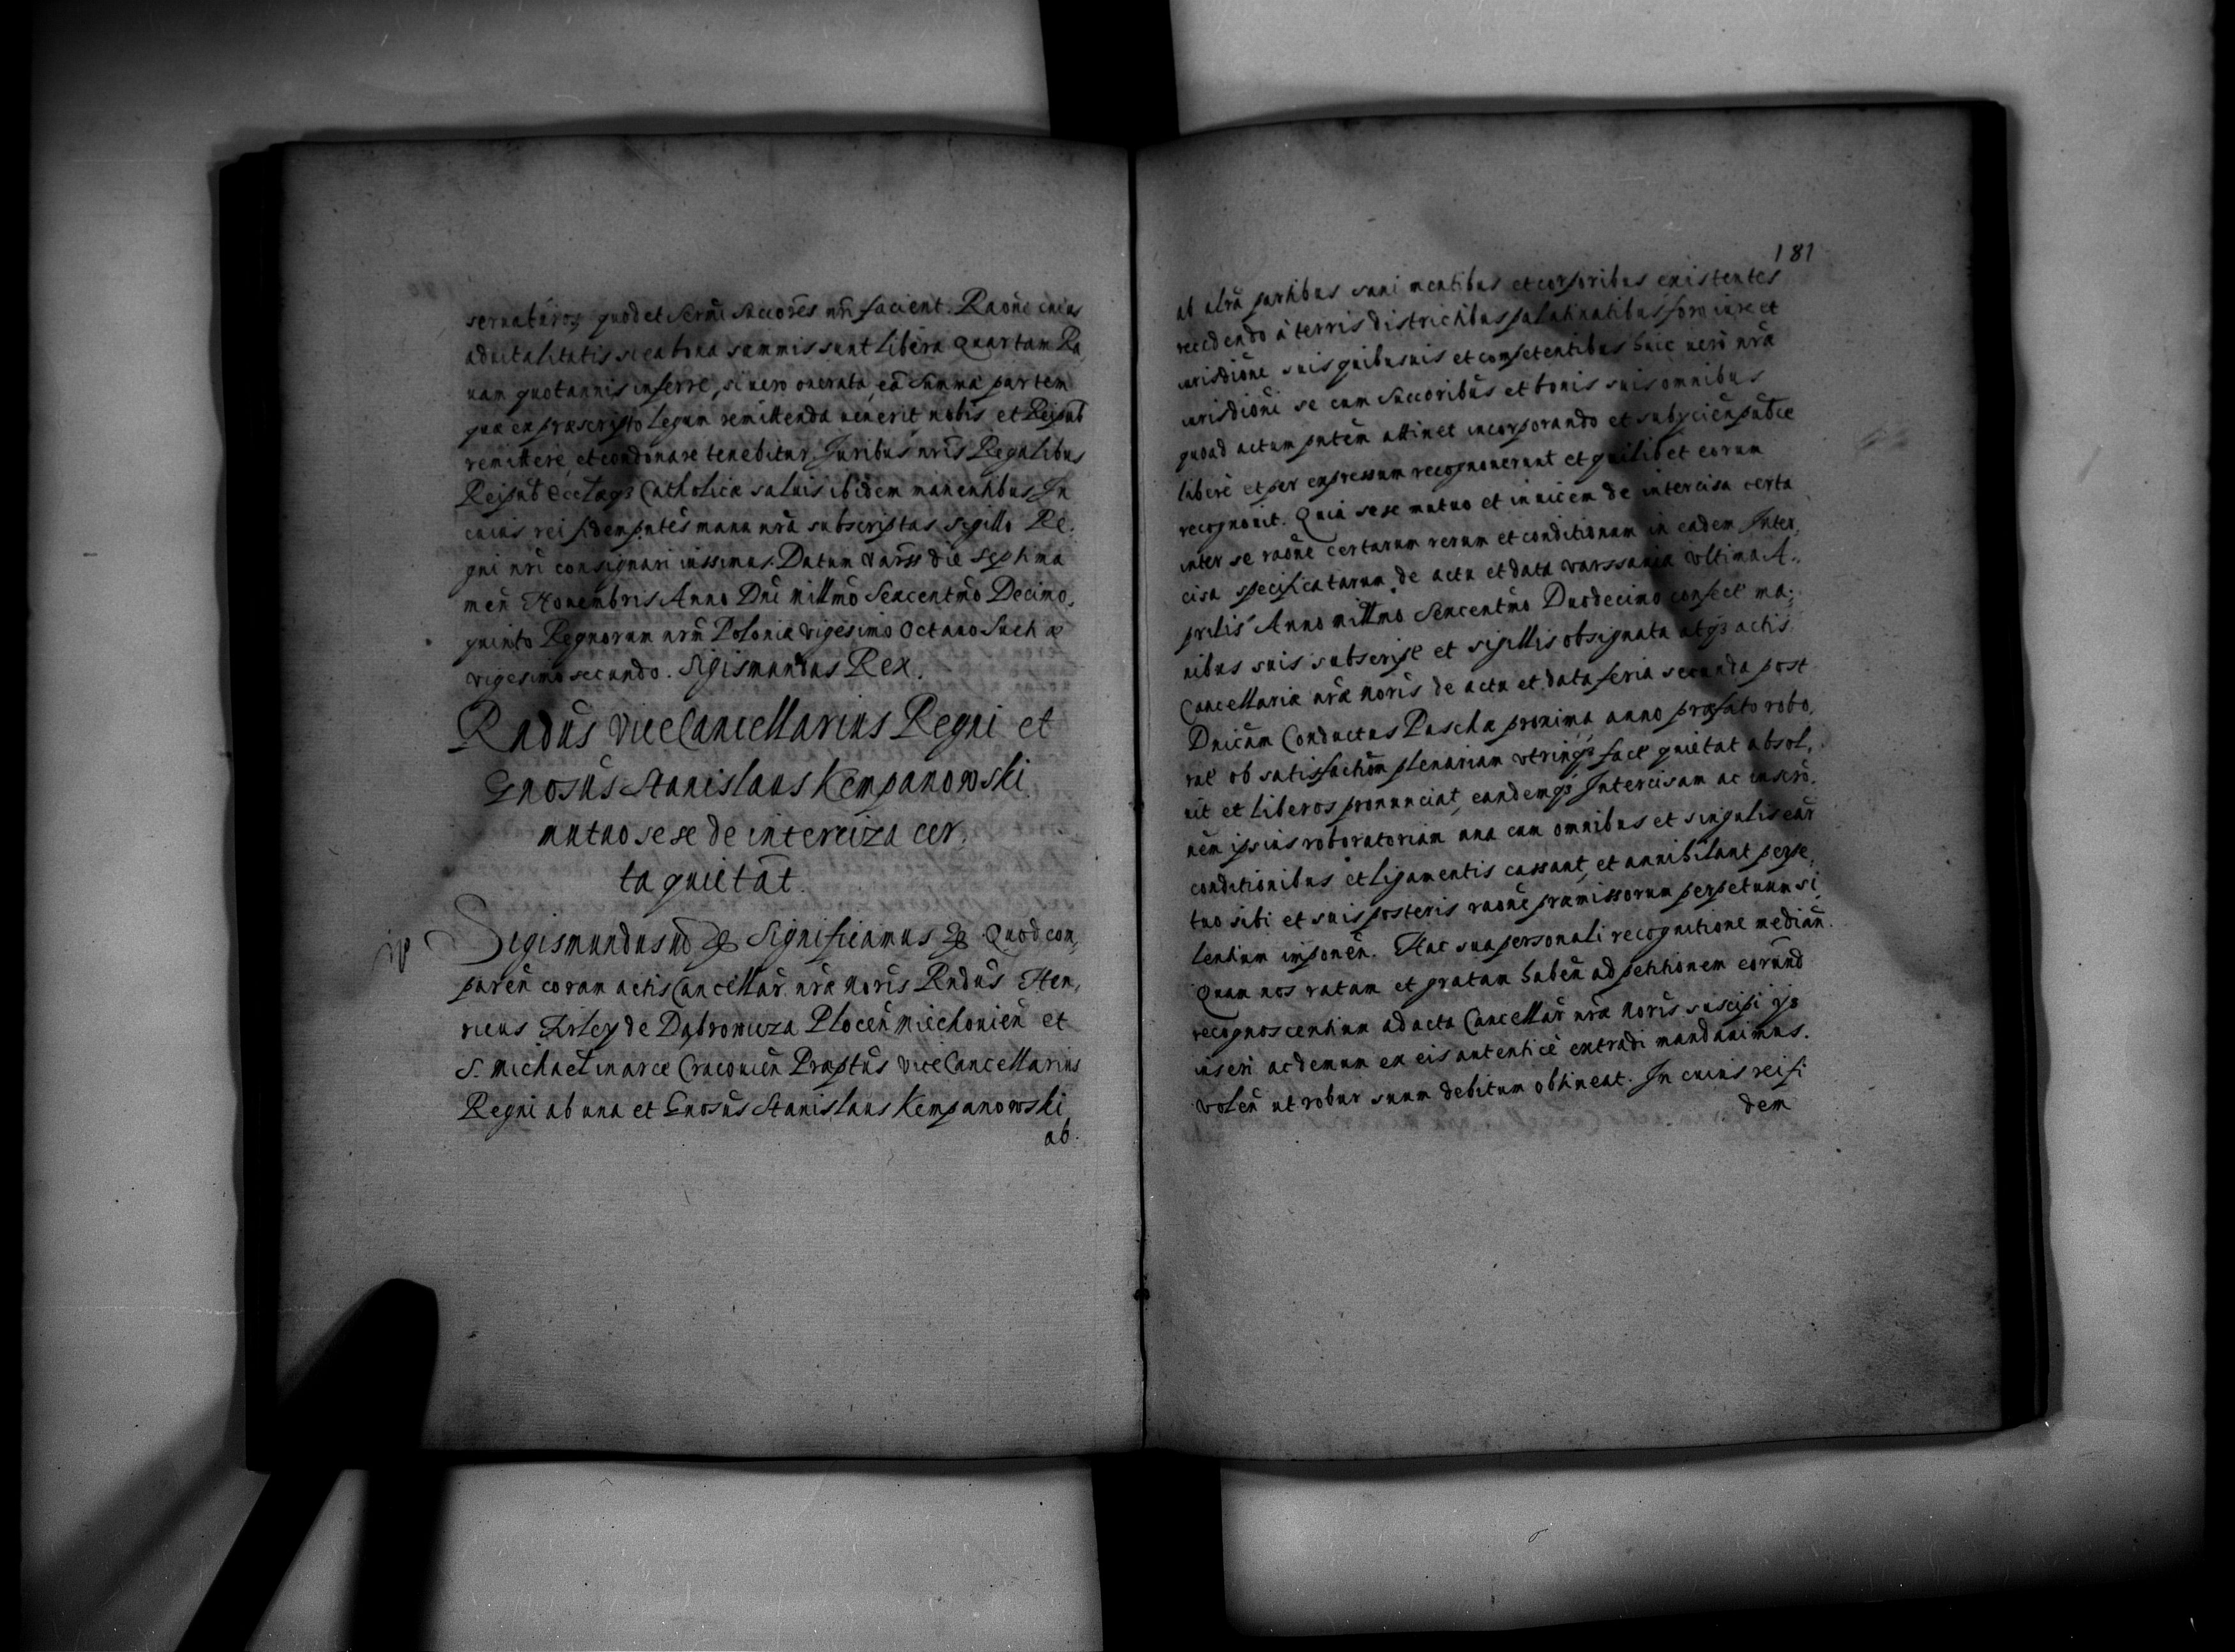 seruaturos quod et Sermi Succōres nrī facient. Raōne cuius
aduitalitatis si ea bona summis sunt libera Quartam Ra
uam quotannis inferre, si uero onerata, eā Summā partem
quæ ex præscripto legum remittenda uenerit nobis et Reipub
remittere et condonare tenebitur. Juribus nrīs Regalibus
Reipub Ecclæqз Catholicæ saluis ibidem manentibus. In
cuius rei fidem pntēs manu nrā subscriptas Sigillo Re,
gni nrī consignari iussimus. Datum Varss die Septima
men Nouembris Anno Dnī Millmō Sexcentmō Decimo,
quinto Regnorum nrm̄ Poloniæ vigesimo Octauo Sueciæ
vigesimo secundo. Sigismundus Rex.
Rndūs ViceCancellarius Regni et
Gnosūs Stanislaus Kempanowski
mutuo sese de interciza cer,
ta quietāt
Sigismundus &. Significamus &. Quod com,
paren̄ coram actis Cancellar̄ nrǣ Norīs Rndūs Hen,
ricus Firley de Dąbrowicza Plocen̄ Miechouien̄ et
S. Michaelin arce Cracouien̄ Præptūs ViceCancellarius
Regni ab una et Gnosūs Stanislaus Kempanowski
ab.
181
ab altrā partibus sani mentibus et corporibus existentes
recedendo à terris districtibus palatinatibus foro iure et
iurisdiōne suis quibusuis et competentibus huic uerò nrā
iurisdiōni se cum Succōribus et bonis suis omnibus
quoad actum pntēm attinet incorporando et subycien̄ publce
liberè et per expressum recognouerunt et quilibet eorum
recognouit. Quia sese mutuo et inuicem de intercisa certa
inter se raōne certarum rerum et conditionum in eadem Inter,
cisa specificatarum de actu et data Varssauiæ Vltima A,
prilis Anno Millmo Sexcentmo Duodecimo confect ma,
nibus suis subscript et sigillis obsignata atqз actis
Cancellariæ nræ Norīs de actu et data feria secunda post
Dnicām Conductus Paschæ proxima anno præfato robo,
rat ob satisfactiōm plenariam vtrinqз fact quietat absol,
uit et liberos pronunciat, eandemqз Intercisam ac inscrō,
nem̄ ipsius roboratoriam una cum omnibus et singulis ear̄
conditionibus et ligamentis cassant, et annihilant perpe,
tuo sibi et suis posteris raōne præmissorum perpetuum si
lentium imponen̄. Hac sua personali recognitione median̄.
Quam nos ratam et gratam haben̄ ad petitionem eorūnd
recognoscentium ad acta Cancellar̄ nræ Norīs suscipi ysqз
inseri ac demum ex eis autenticè extradi mandauimus.
Volen̄ ut robur suum debitum obtineat. In cuius rei fi
dem